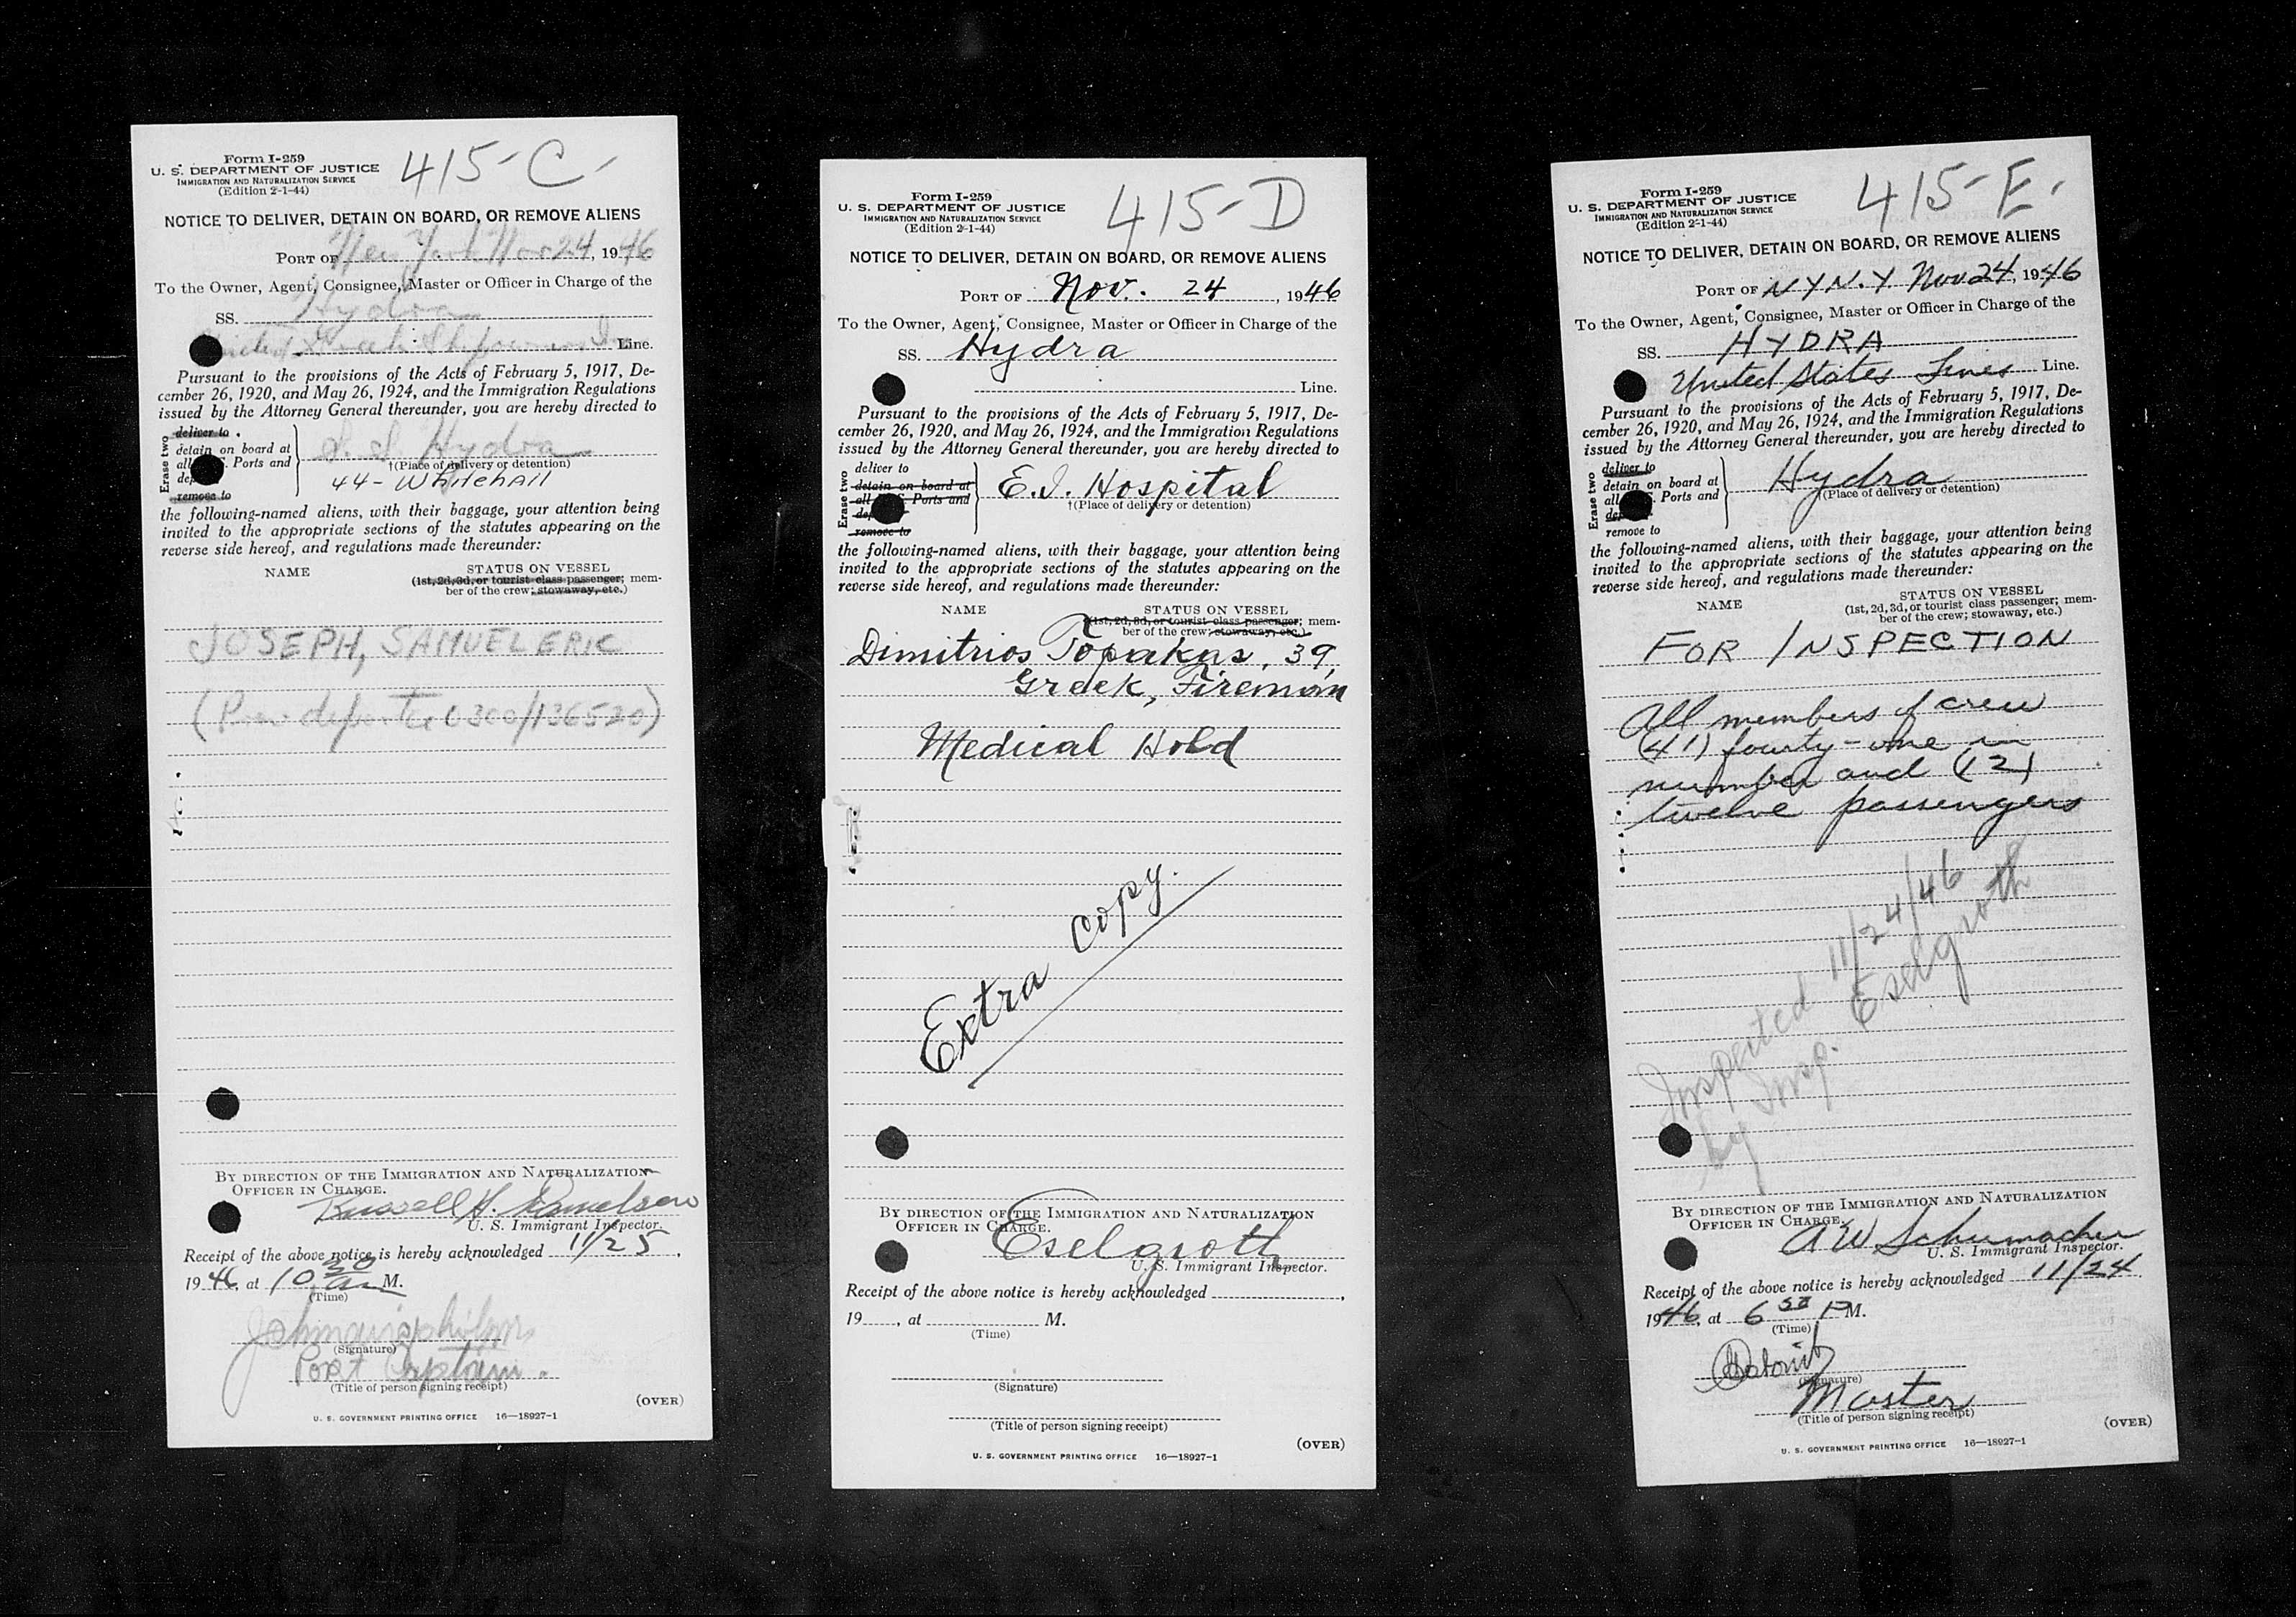 415-C-
Form I-259
U. S. DEPARTMENT OF JUSTICE
IMMIGRATION AND NATURALIZATION SERVICE
(Edition 2-1-44)
NOTICE TO DELIVER, DETAIN ON BOARD, OR REMOVE ALIENS
PORT OF New York Nov 24, 1946
To the Owner, Agent, Consignee, Master or Officer in Charge of the
SS. Hydra
Line.
Pursuant to the provisions of the Acts of February 5, 1917, De-
cember 26, 1920, and May 26, 1924, and the Immigration Regulations
issued by the Attorney General thereunder, you are hereby directed to
Erase two
deliver to
detain on board at
all Ports and
S.S. Hydra
†(Place of delivery or detention)
44 - Whitehall
remove to
the following-named aliens, with their baggage, your attention being
invited to the appropriate sections of the statutes appearing on the
reverse side hereof, and regulations made thereunder:
NAME STATUS ON VESSEL
(1st, 2d, 3d, or tourist class passenger; mem-
ber of the crew; stowaway, etc.)
JOSEPH, SAMUEL ERIC
0300/136520)
BY DIRECTION OF THE IMMIGRATION AND NATURALIZATION
OFFICER IN CHARGE.
Russell H. Samelson
U. S. Immigrant Inspector.
Receipt of the above notice is hereby acknowledged 11/25,
1946, at 10 30 a M.
(Time)
(Signature)
Port Captain.
(Title of person signing receipt)
(OVER)
U. S. GOVERNMENT PRINTING OFFICE 16—18927-1
415-D
Form I-259
U. S. DEPARTMENT OF JUSTICE
IMMIGRATION AND NATURALIZATION SERVICE
(Edition 2-1-44)
NOTICE TO DELIVER, DETAIN ON BOARD, OR REMOVE ALIENS
PORT OF Nov. 24, 1946
To the Owner, Agent, Consignee, Master or Officer in Charge of the
SS. Hydra
Line.
Pursuant to the provisions of the Acts of February 5, 1917, De-
cember 26, 1920, and May 26, 1924, and the Immigration Regulations
issued by the Attorney General thereunder, you are hereby directed to
Erase two
deliver to
detain on board at
all Ports and
E.I. Hospital
†(Place of delivery or detention)
remove to
the following-named aliens, with their baggage, your attention being
invited to the appropriate sections of the statutes appearing on the
reverse side hereof, and regulations made thereunder:
NAME STATUS ON VESSEL
(1st, 2d, 3d, or tourist class passenger; mem-
ber of the crew; stowaway, etc.)
Dimitrios Topakas, 39,
Greek, Fireman
Medical Hold
Extra copy.
BY DIRECTION OF THE IMMIGRATION AND NATURALIZATION
OFFICER IN CHARGE.
Eselgroth
U. S. Immigrant Inspector.
Receipt of the above notice is hereby acknowledged ,
19 , at M.
(Time)
(Signature)
(Title of person signing receipt)
(OVER)
U. S. GOVERNMENT PRINTING OFFICE 16—18927-1
415-E.
Form I-259
U. S. DEPARTMENT OF JUSTICE
IMMIGRATION AND NATURALIZATION SERVICE
(Edition 2-1-44)
NOTICE TO DELIVER, DETAIN ON BOARD, OR REMOVE ALIENS
PORT OF N Y N.Y. Nov 24, 1946
To the Owner, Agent, Consignee, Master or Officer in Charge of the
SS. HYDRA
United States Lines Line.
Pursuant to the provisions of the Acts of February 5, 1917, De-
cember 26, 1920, and May 26, 1924, and the Immigration Regulations
issued by the Attorney General thereunder, you are hereby directed to
Erase two
deliver to
detain on board at
all Ports and
Hydra
†(Place of delivery or detention)
remove to
the following-named aliens, with their baggage, your attention being
invited to the appropriate sections of the statutes appearing on the
reverse side hereof, and regulations made thereunder:
NAME STATUS ON VESSEL
(1st, 2d, 3d, or tourist class passenger; mem-
ber of the crew; stowaway, etc.)
FOR INSPECTION
All members of crew
(41) fourty-one in
number and (12)
twelve passengers
Inspected 11/24/46
by Insp. Eselgroth
BY DIRECTION OF THE IMMIGRATION AND NATURALIZATION
OFFICER IN CHARGE.
A W Schumacher
U. S. Immigrant Inspector.
Receipt of the above notice is hereby acknowledged 11/24,
1946, at 6 PM.
(Time)
(Signature)
Master
(Title of person signing receipt)
(OVER)
U. S. GOVERNMENT PRINTING OFFICE 16—18927-1